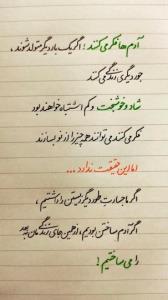 آدم‌ها فکر می‌کنند؛ اگر یک بار دیگر متولد شوند،
جور دیگری زندگی می‌کنند
شاد و خوشبخت و کم اشتباه خواهند بود
فکر می‌کنند می‌توانند همه چیز را از نو بسازند
اما این حقیقت ندارد ...
اگر ما جسارت طور دیگری زیستن را داشتیم،
اگر آدم ساختن بودیم، از همین جای زندگی‌مان به بعد
را می‌ساختیم!